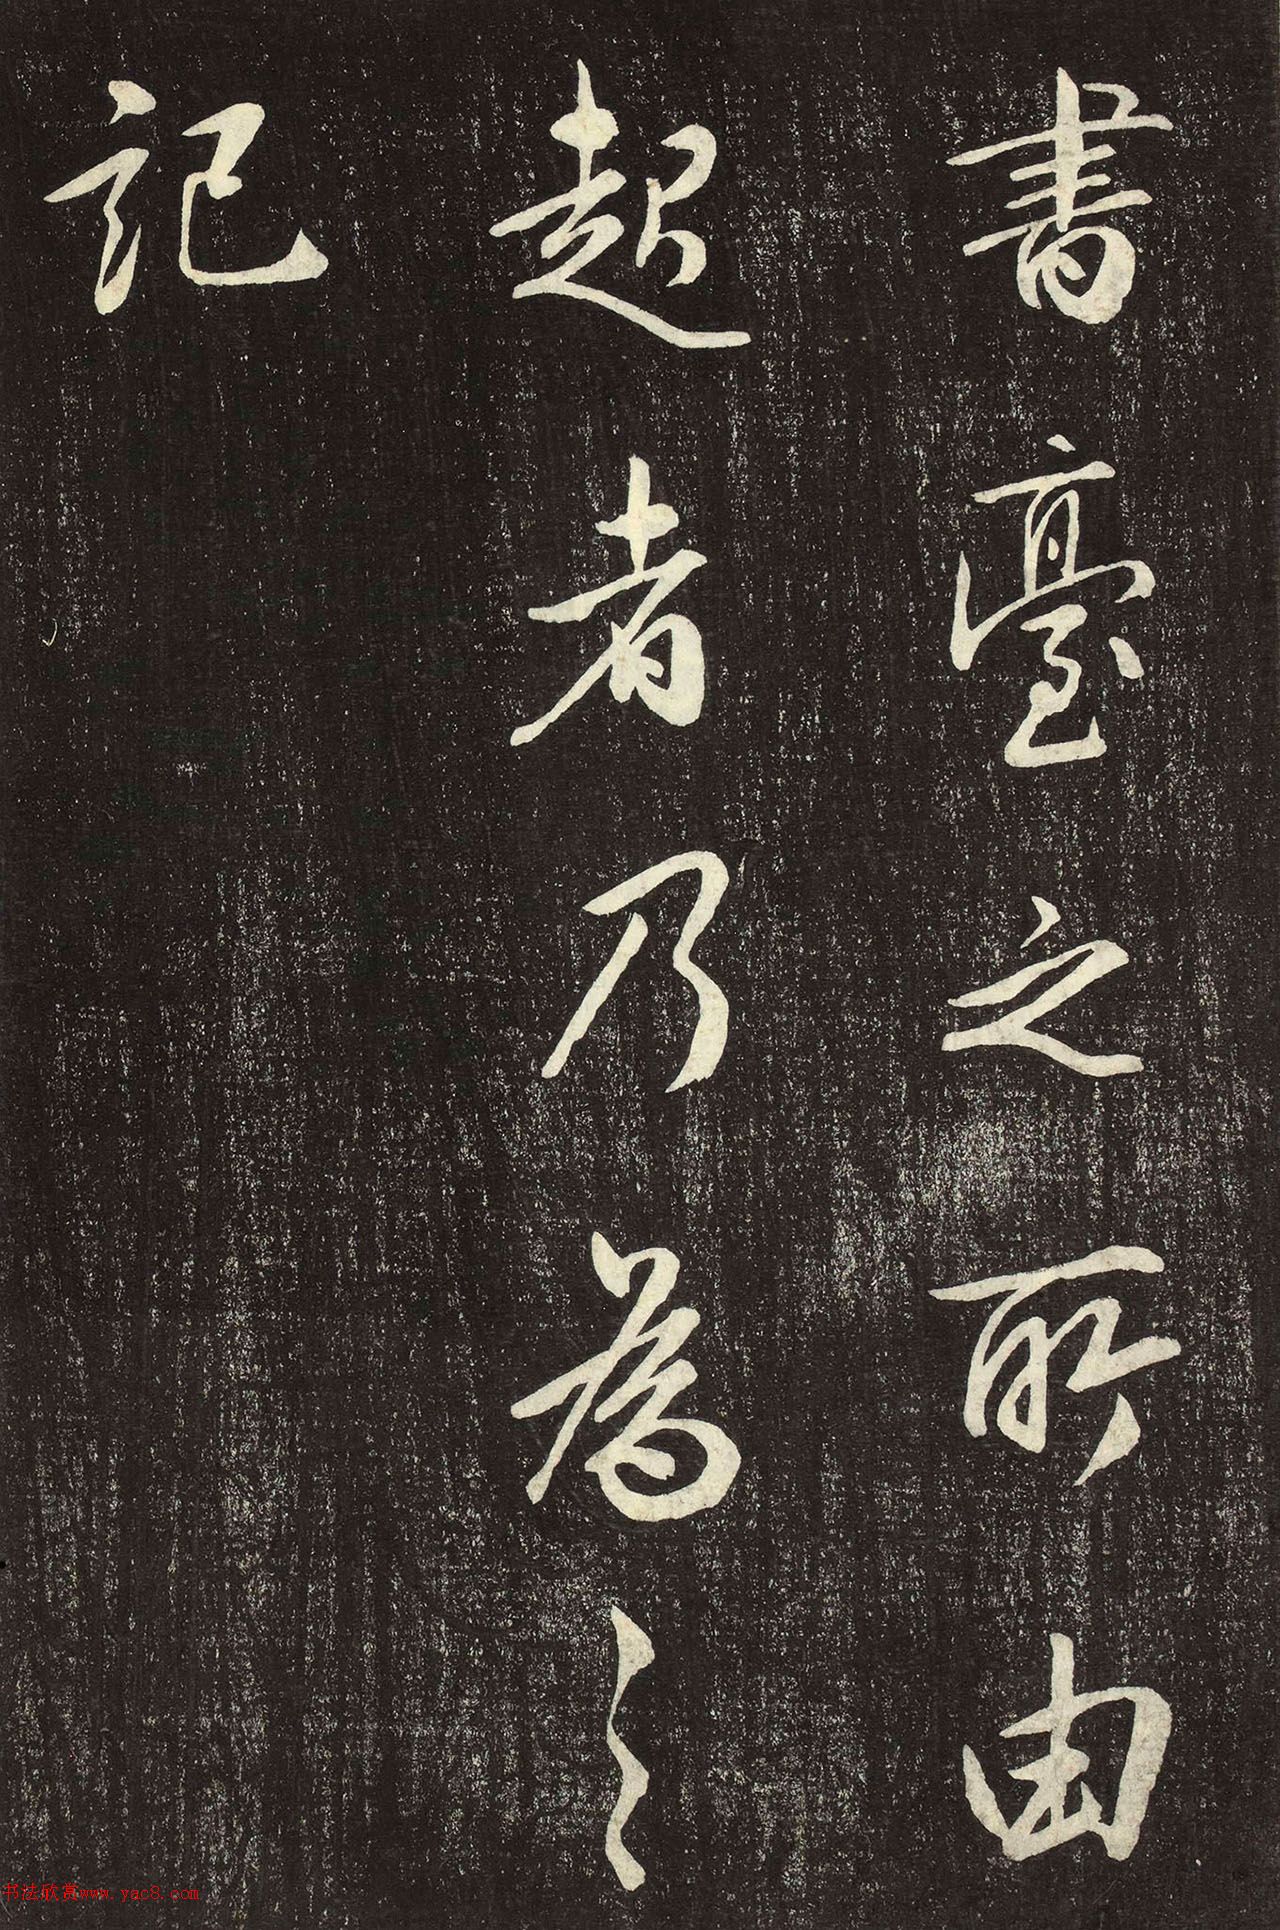 書臺之所由
起者乃為之
記
书法欣赏www.yac8.com